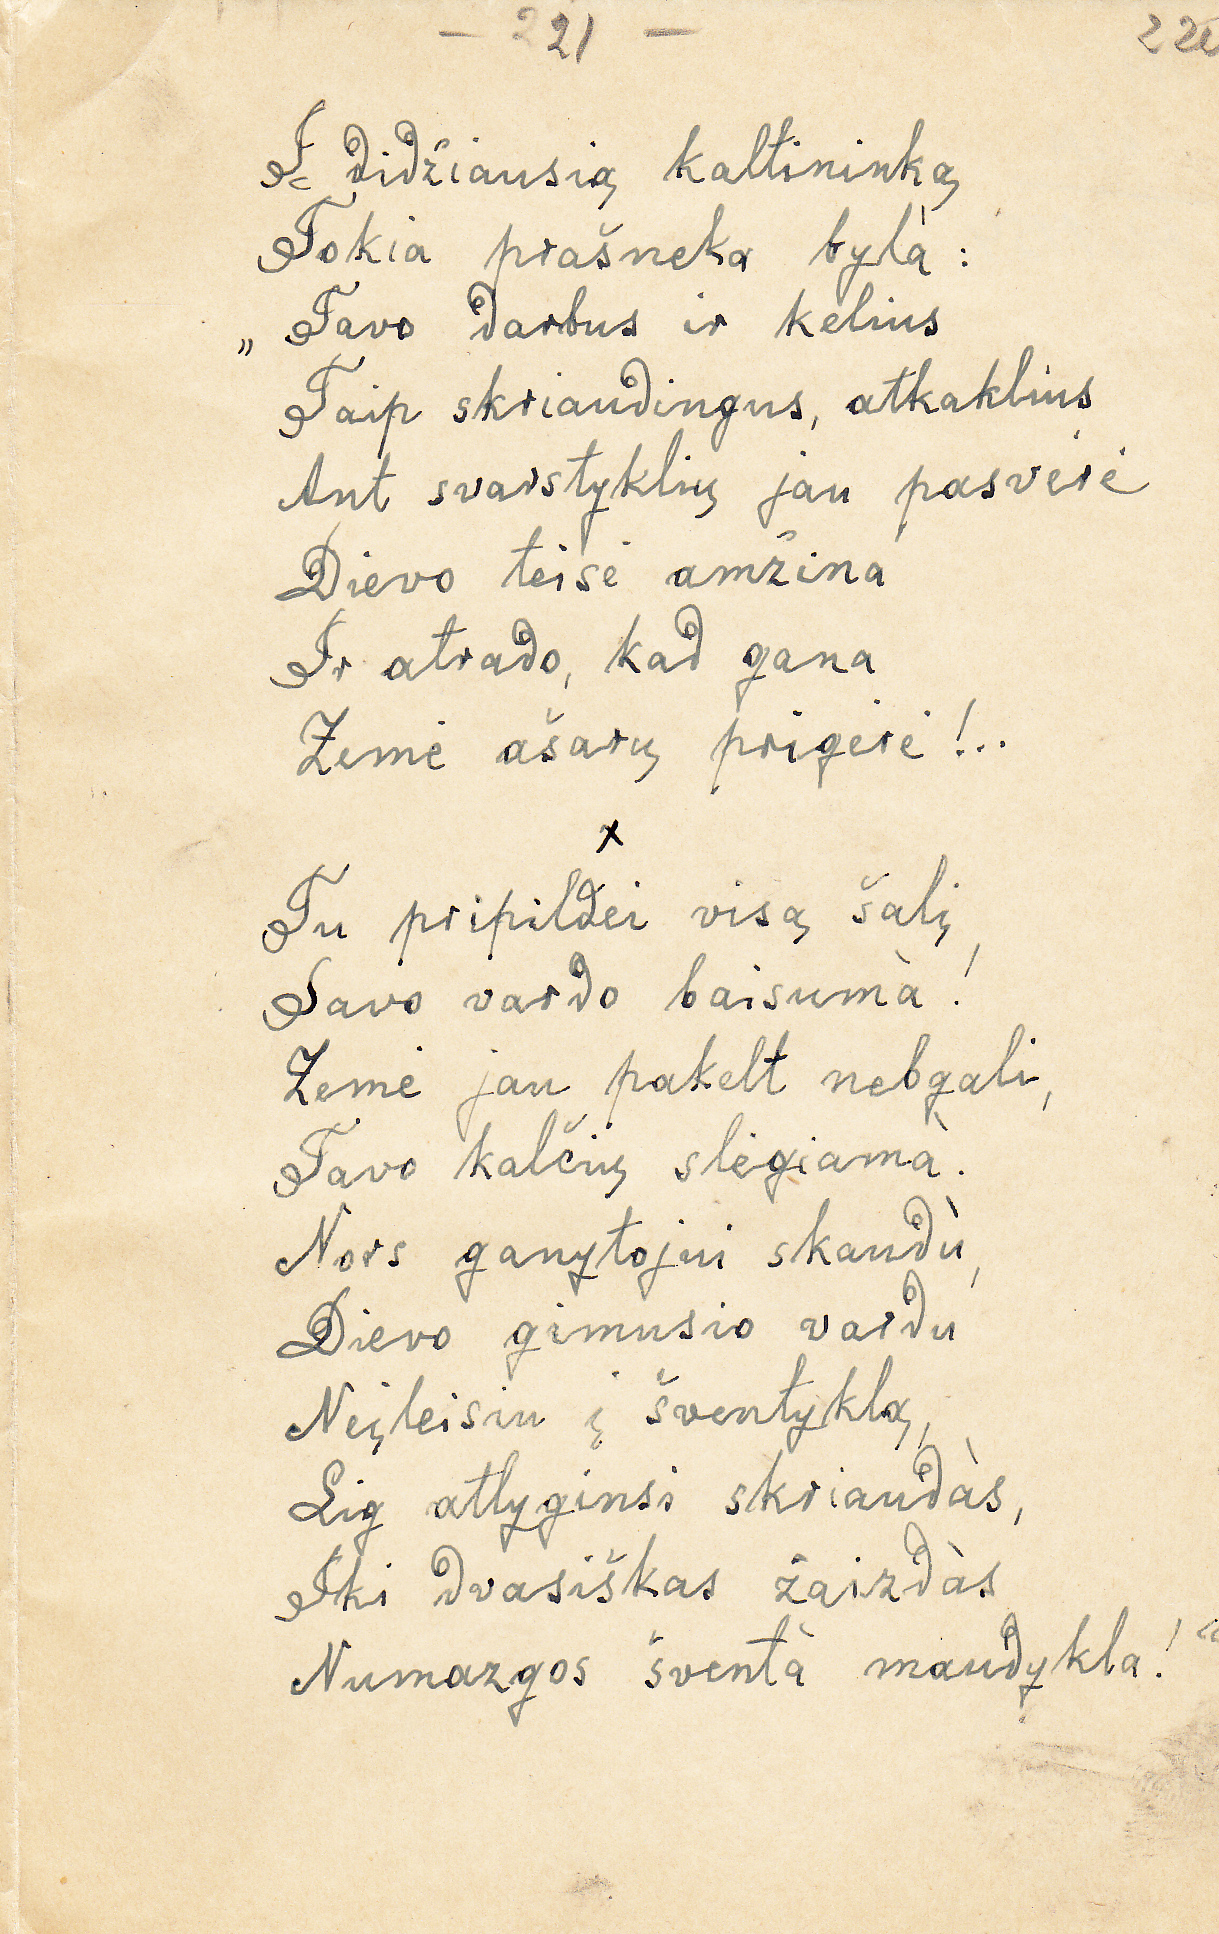 — 221 —
Į didžiausią kaltininką
Tokia prašneka bylà:
„Tavo darbus ir kelius
Taip skriaudingus, atkaklius
Ant svarstyklių jau pasvėrė
Dievo teisė amžina
Ir atrado, kad gana
Žemė ašarų prigėrė!..
x
Tu pripildei visą šalį
Savo vardo baisumà!
Žemė jau pakelt nebgali,
Tavo kalčių slėgiamà.
Nors ganytojui skaudù,
Dievo gimusio vardu
Neįleisiu į šventyklą,
Lig atlyginsi skriaudàs,
Iki dvasiškas žaizdàs
Numazgos šventà maudykla!“